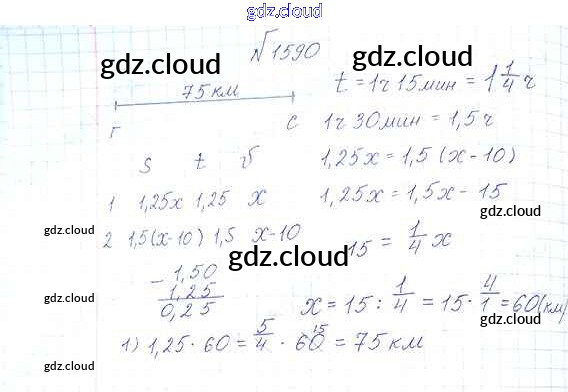 gdz.cloud
№ 1590
gdz.cloud
gdz.cloud
75 км
t = 1ч 15мин = 1 1/4 ч
Г С 1ч 30мин = 1,5 ч
S t v
1,25x = 1,5 (x - 10)
1 1,25x 1,25 x
1,25x = 1,5x - 15
gdz.cloud gdz.cloud
2 1,5(x-10) 1,5 x-10
15 = 1/4 x
gdz.cloud
- 1,50
1,25
0,25
gdz.cloud
x = 15 : 1/4 = 15 · 4/1 = 60 (км)
gdz.cloud
1) 1,25 · 60 = 5/4 · 60 15 = 75 км
gdz.cloud gdz.cloud